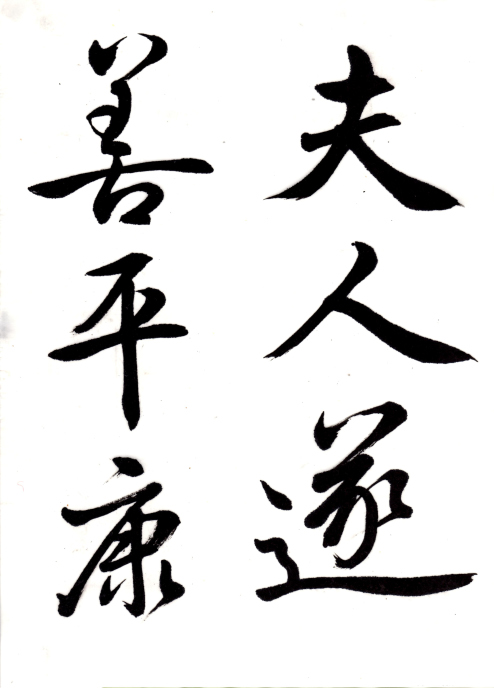 夫人遂
善平康